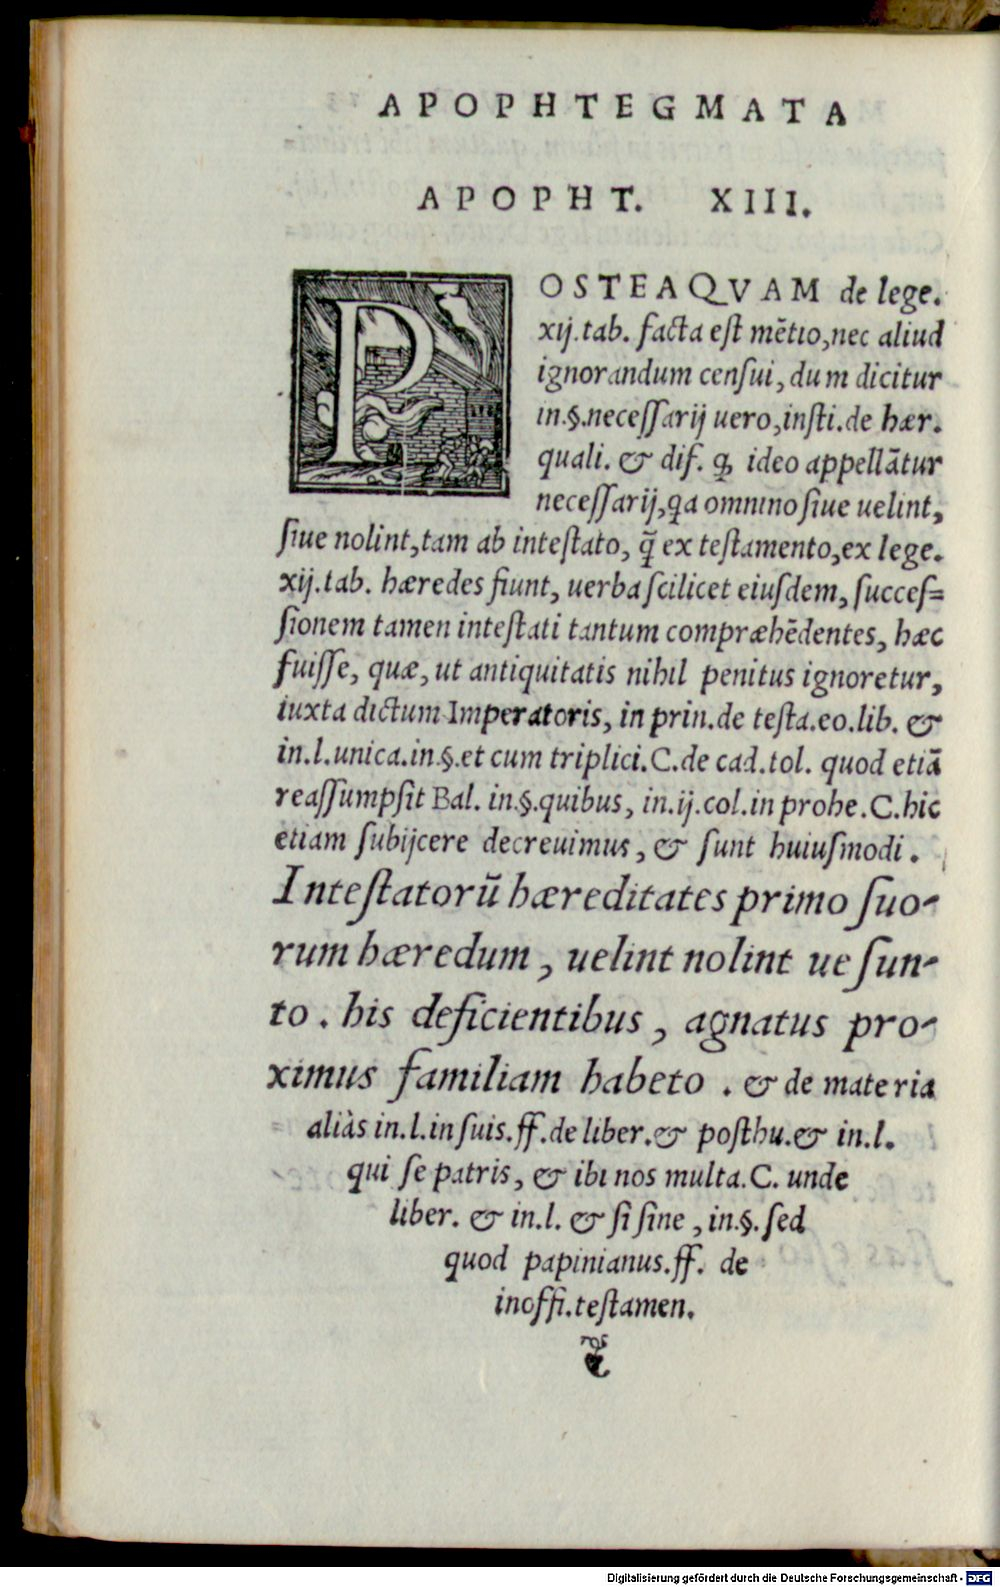 APOPHTEGMATA
APOPHT. XIII.
POSTEAQVAM de lege.
xij.tab. facta eſt mētio,nec aliud
ignorandum cenſui, dum dicitur
in.§.neceſſarij uero,inſti.de hær.
quali. & dif. q̨ ideo appellātur
neceſſarij,q̨a omnino ſiue uelint,
ſiue nolint,tam ab inteſtato, q̨̃ ex teſtamento,ex lege.
xij.tab. hæredes fiunt, uerba ſcilicet eiuſdem, ſucceſ=
ſionem tamen inteſtati tantum compræhēdentes, hæc
fuiſſe, quæ, ut antiquitatis nihil penitus ignoretur,
iuxta dictum Imperatoris, in prin.de teſta.eo.lib. &
in.l.unica.in.§.et cum triplici.C.de cad.tol. quod etiā
reaſſumpſit Bal. in.§.quibus, in.ij.col.in prohe.C.hic
etiam ſubijcere decreuimus, & ſunt huiuſmodi.
Inteſtatorū hæreditates primo ſuo-
rum hæredum, uelint nolint ue ſun-
to. his deficientibus, agnatus pro-
ximus familiam habeto. & de materia
aliàs in.l.in ſuis.ff.de liber.& poſthu.& in.l.
qui ſe patris, & ibi nos multa.C. unde
liber. & in.l. & ſi ſine, in.§. ſed
quod papinianus.ff. de
inoffi.teſtamen.
Digitalisierung gefördert durch die Deutsche Forschungsgemeinschaft - DFG